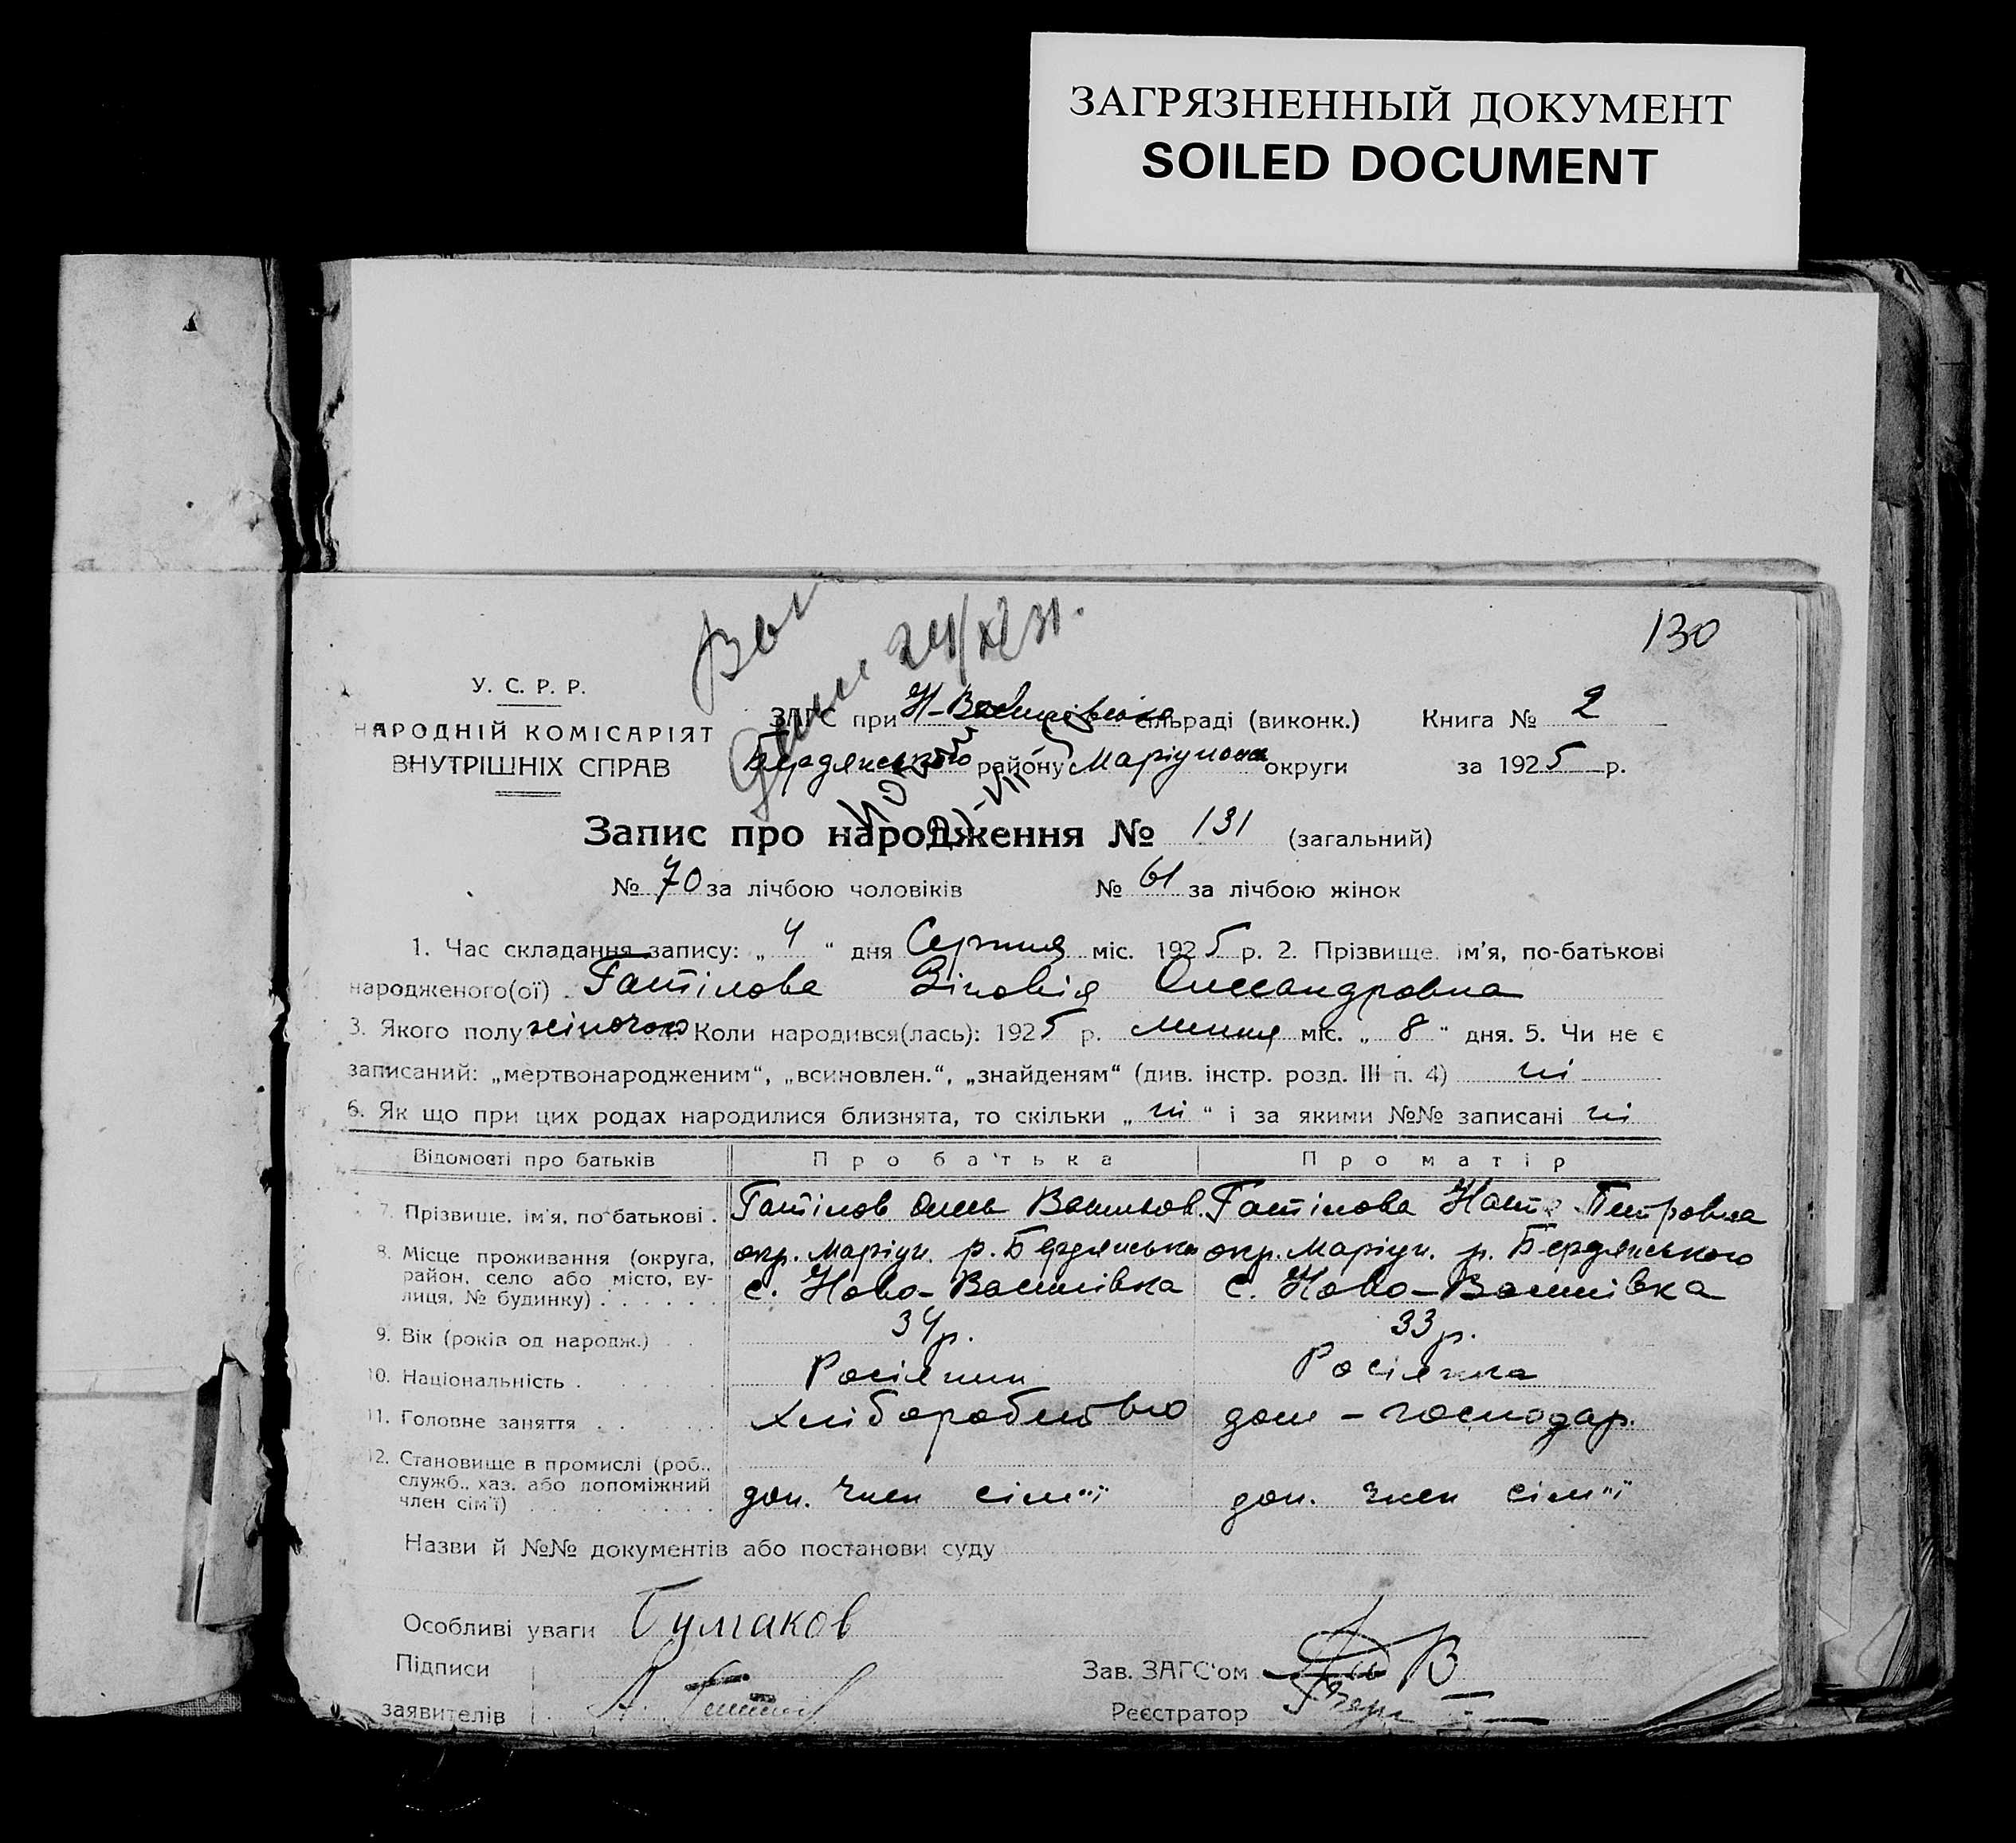 ЗАГРЯЗНЕННЫЙ ДОКУМЕНТ
SOILED DOCUMENT
130
24/XI 31.
У. С. Р. Р.
НАРОДНІЙ КОМІСАРІЯТ
ВНУТРІШНІХ СПРАВ
ЗАГС при Н-Василівська сільраді (виконк.) Книга № 2
Бердянського району Маріупольск округи за 1925 р.
Запис про народження № 131 (загальний)
№ 70 за лічбою чоловіків № 61 за лічбою жінок
1. Час складання запису: „ 4 “ дня Серпня міс. 1925 р. 2. Прізвище, ім’я, по-батькові
народженого(ої) Гатілова Зіновія Олександровна
3. Якого полу жіночого 4. Коли народився(лась): 1925 р. Липня міс. „ 8 “ дня. 5. Чи не є
записаний: „мертвонародженим“, „всиновлен.“, „знайденям“ (див. інстр. розд. III п. 4) ні
6. Як що при цих родах народилися близнята, то скільки „ ні “ і за якими №№ записані ні
Відомості про батьків Про батька Про матір
7. Прізвище, ім’я, по батькові . Гатілов Олек Васильов. Гатілова Наст Петровна
8. Місце проживання (округа, район, село або місто, вулиця, № будинку) . . . . . . окр. Маріуп. р. Бердянська с. Ново-Василівка окр. Маріуп. р. Бердянського с. Ново-Василівка
9. Вік (років од народж.) . . 34 р. 33 р.
10. Національність . Росіянин Росіянка
11. Головне заняття . . Хліборобство дом - господар.
12. Становище в промислі (роб., служб., хаз. або допоміжний член сім’ї) доп. член сім"ї доп. член сім"ї
Назви й №№ документів або постанови суду
Особливі уваги Бумаков
Підписи
заявителів
Зав. ЗАГС‘ом
Реєстратор